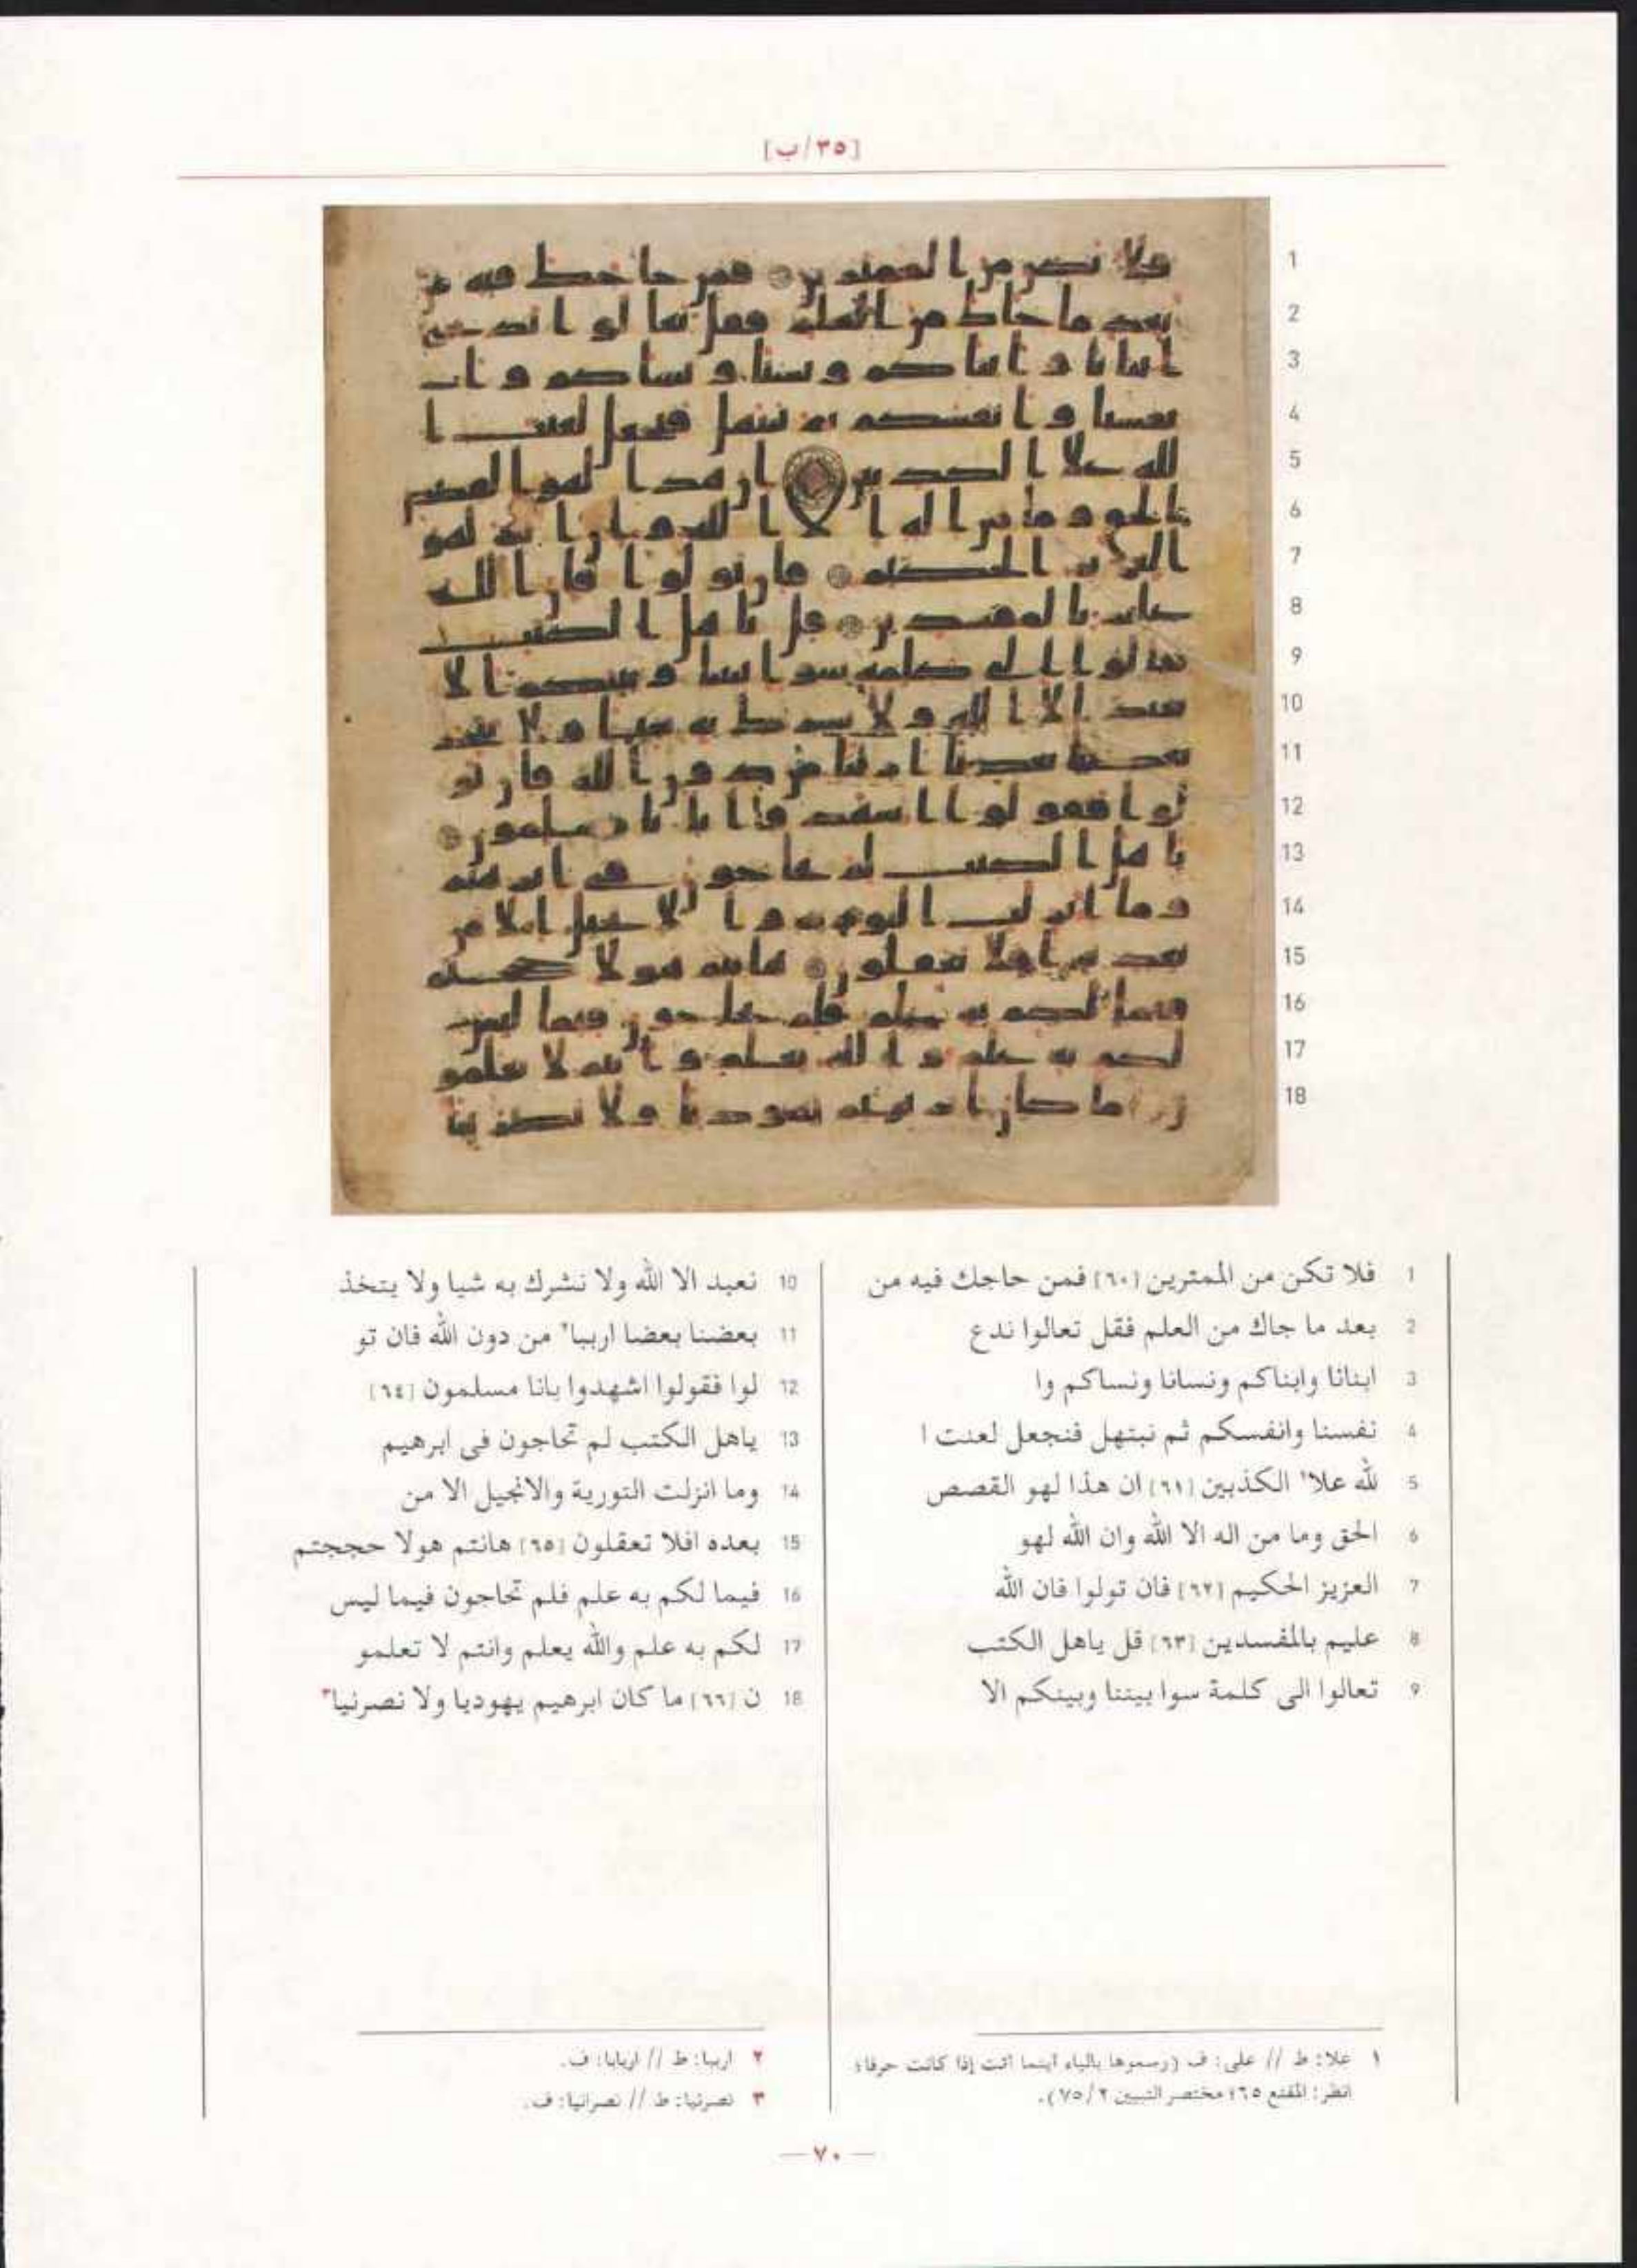 [٣٥/ب]
1 فلا تكن من الممترين [٦٠] فمن حاجك فيه من
2 بعد ما جاك من العلم فقل تعالوا ندع
3 ابنانا وابناكم ونسانا ونساكم وا
4 نفسنا وانفسكم ثم نبتهل فنجعل لعنت ا
5 لله علا١ الكذبين [٦١] ان هذا لهو القصص
6 الحق وما من اله الا الله وان الله لهو
7 العزيز الحكيم [٦٢] فان تولوا فان الله
8 عليم بالمفسدين [٦٣] قل ياهل الكتب
9 تعالوا الى كلمة سوا بيننا وبينكم الا
10 نعبد الا الله ولا نشرك به شيا ولا يتخذ
11 بعضنا بعضا ارببا٢ من دون الله فان تو
12 لوا فقولوا اشهدوا بانا مسلمون [٦٤]
13 ياهل الكتب لم تحاجون فى ابرهيم
14 وما انزلت التورية والانجيل الا من
15 بعده افلا تعقلون [٦٥] هانتم هولا حججتم
16 فيما لكم به علم فلم تحاجون فيما ليس
17 لكم به علم والله يعلم وانتم لا تعلمو
18 ن [٦٦] ما كان ابرهيم يهوديا ولا نصرنيا٣
١ علا: ط // على: ف (رسموها بالياء أينما أتت إذا كانت حرفا؛
انظر: المقنع ٦٥؛ مختصر التبيين ٧٥/٢).
٢ ارببا: ط // اربابا: ف.
٣ نصرنيا: ط // نصرانيا: ف.
— ٧٠ —